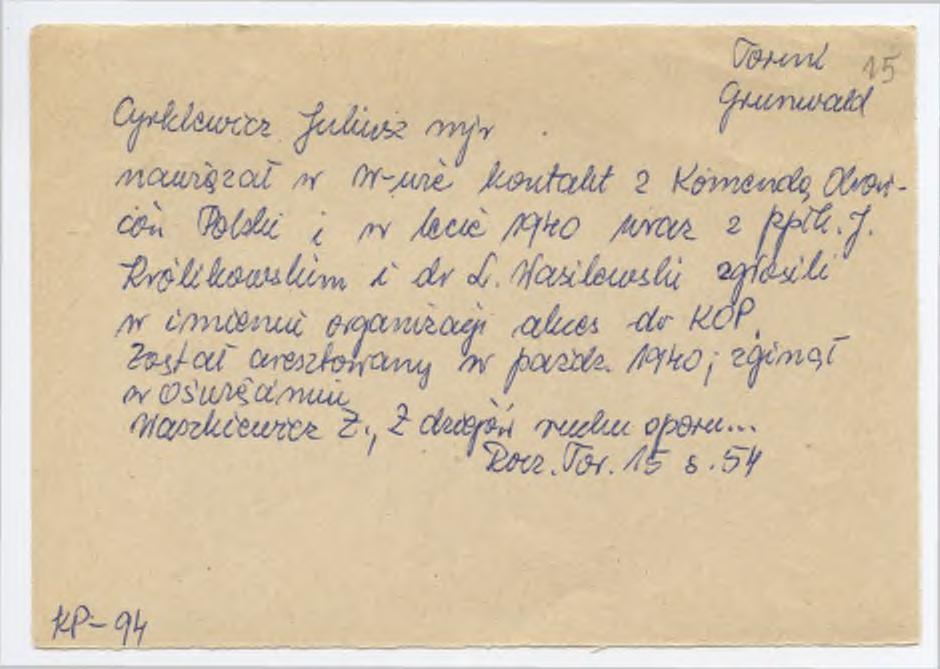 Toruń 15
Grunwald
Cyrklewicz Juliusz mjr
nawiązał w W-wie kontakt z Komendą Obroń-
ców Polski i w lecie 1940 wraz z ppłk. J.
Królikowskim i dr L. Wasilewski zgłosili
w imieniu organizacji akces do KOP.
Został aresztowany w paźdz. 1940; zginął
w Oświęcimiu
Waszkiewicz Z., Z dziejów ruchu oporu...
Rocz. Tor. 15 s. 54
KP-94